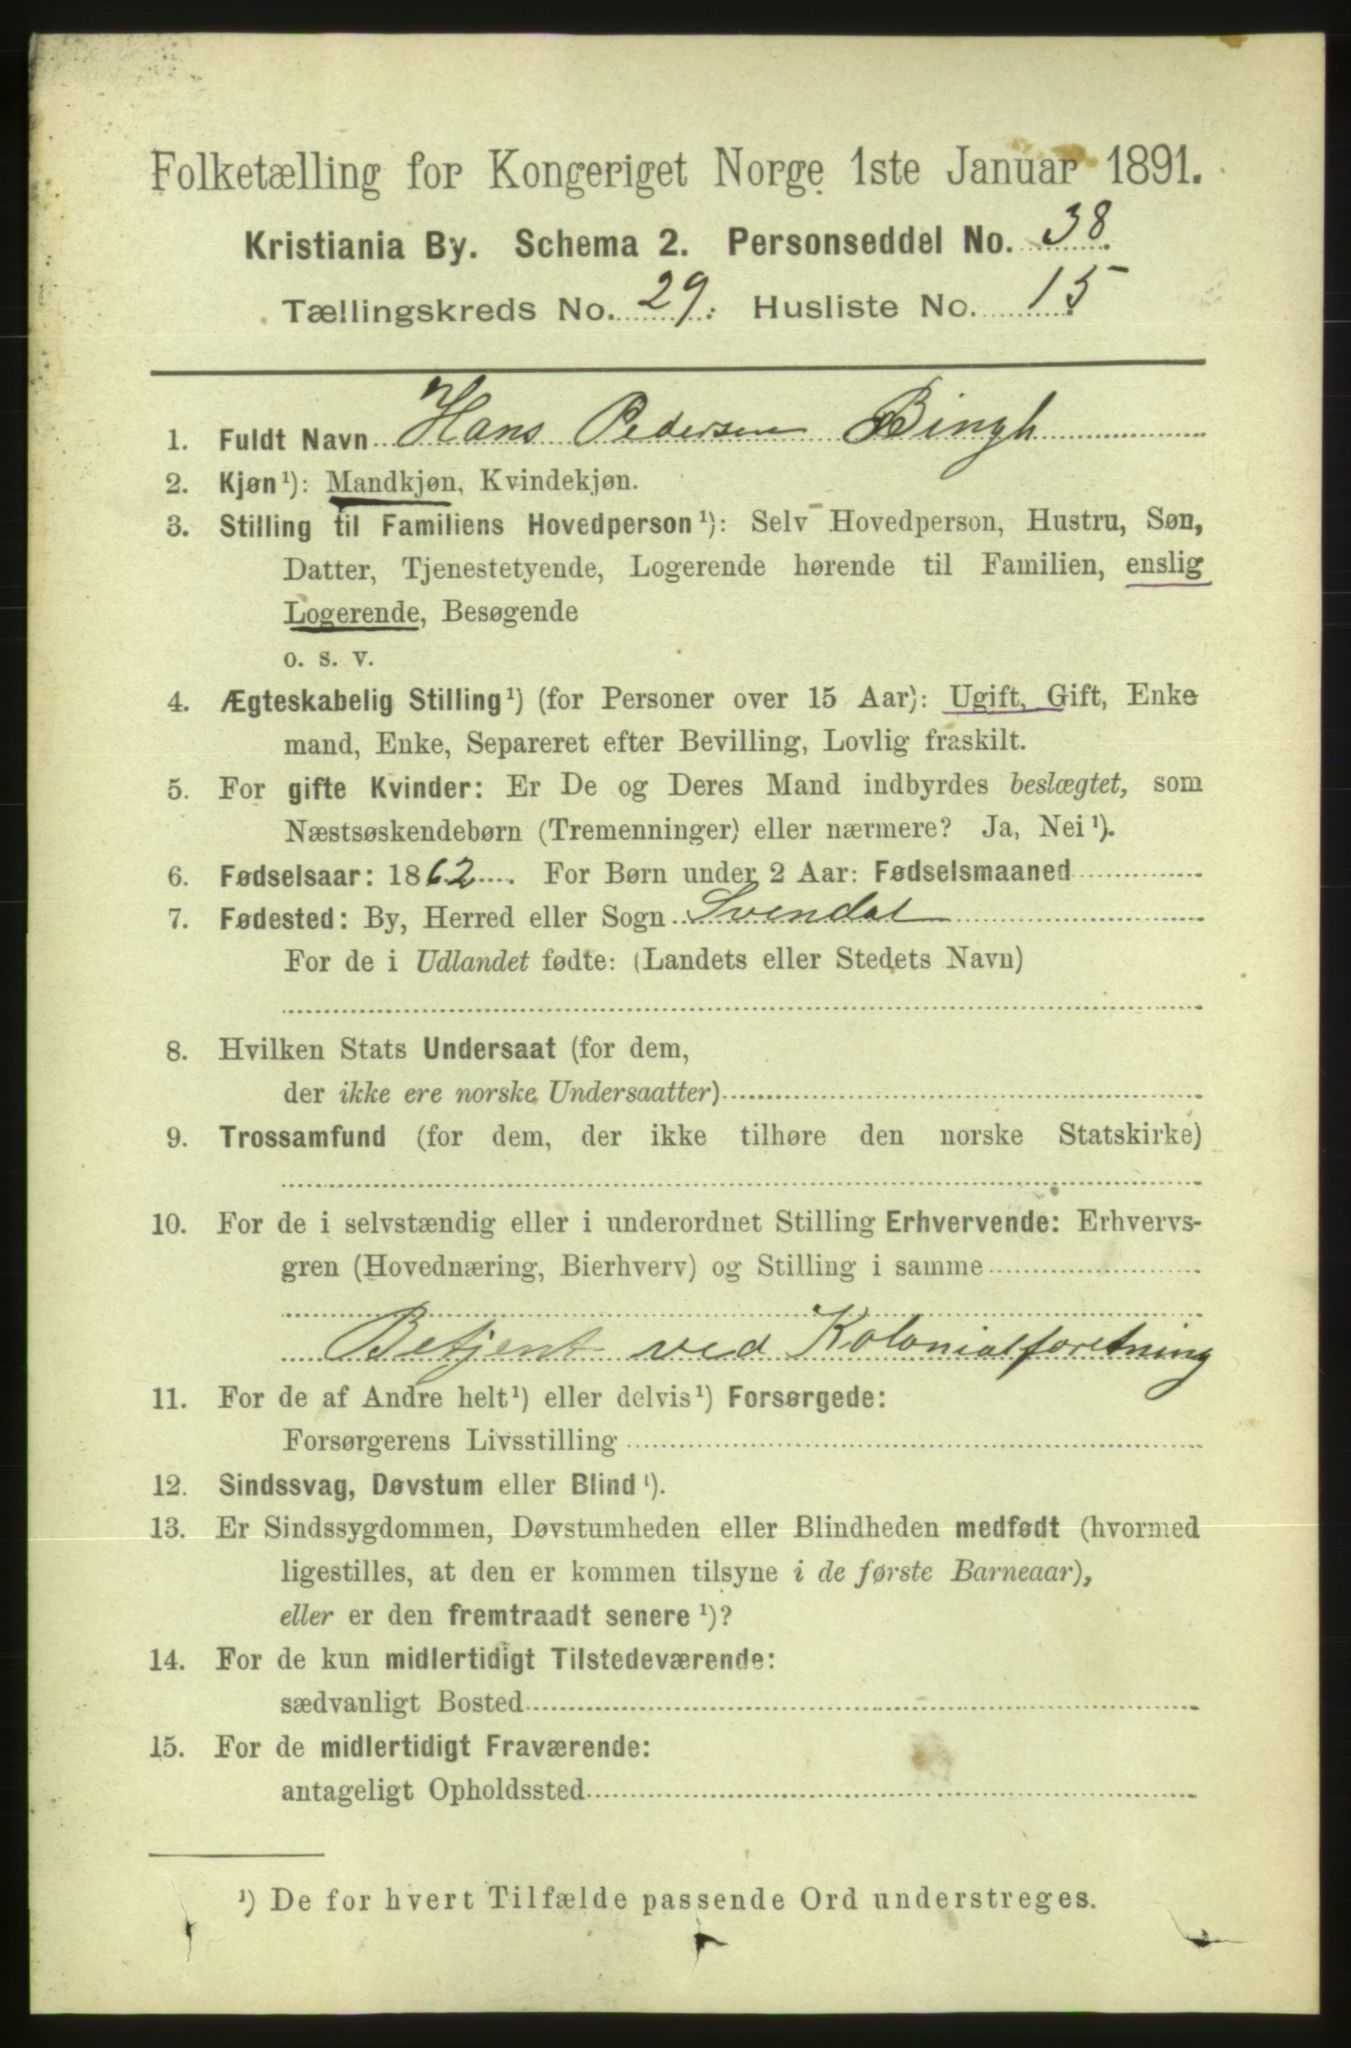 Folketælling for Kongeriget Norge 1ste Januar 1891.
Kristiania By. Schema 2. Personseddel No. 38.
Tællingskreds No. 29. Husliste No. 15
1. Fuldt Navn Hans Pedersen Bingh
2. Kjøn¹): Mandkjøn, Kvindekjøn.
3. Stilling til Familiens Hovedperson¹): Selv Hovedperson, Hustru, Søn,
Datter, Tjenestetyende, Logerende hørende til Familien, enslig
Logerende, Besøgende
o. s. v.
4. Ægteskabelig Stilling¹) (for Personer over 15 Aar): Ugift, Gift, Enke
mand, Enke, Separeret efter Bevilling, Lovlig fraskilt.
5. For gifte Kvinder: Er De og Deres Mand indbyrdes beslægtet, som
Næstsøskendebørn (Tremenninger) eller nærmere? Ja, Nei¹).
6. Fødselsaar: 1862. For Børn under 2 Aar: Fødselsmaaned
7. Fødested: By, Herred eller Sogn Svendal
For de i Udlandet fødte: (Landets eller Stedets Navn)
8. Hvilken Stats Undersaat (for dem,
der ikke ere norske Undersaatter)
9. Trossamfund (for dem, der ikke tilhøre den norske Statskirke)
10. For de i selvstændig eller i underordnet Stilling Erhvervende: Erhvervs-
gren (Hovednæring, Bierhverv) og Stilling i samme
Betjent ved Kolonialforetning
11. For de af Andre helt¹) eller delvis¹) Forsørgede:
Forsørgerens Livsstilling
12. Sindssvag, Døvstum eller Blind¹).
13. Er Sindssygdommen, Døvstumheden eller Blindheden medfødt (hvormed
ligestilles, at den er kommen tilsyne i de første Barneaar),
eller er den fremtraadt senere¹)?
14. For de kun midlertidigt Tilstedeværende:
sædvanligt Bosted
15. For de midlertidigt Fraværende:
antageligt Opholdssted
¹) De for hvert Tilfælde passende Ord understreges.